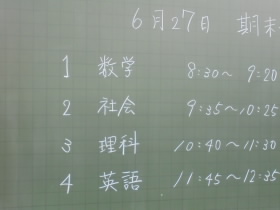 6月27日 期末
1 数学 8:30～ 9:20
2 社会 9:35～10:25
3 理科 10:40～11:30
4 英語 11:45～12:35